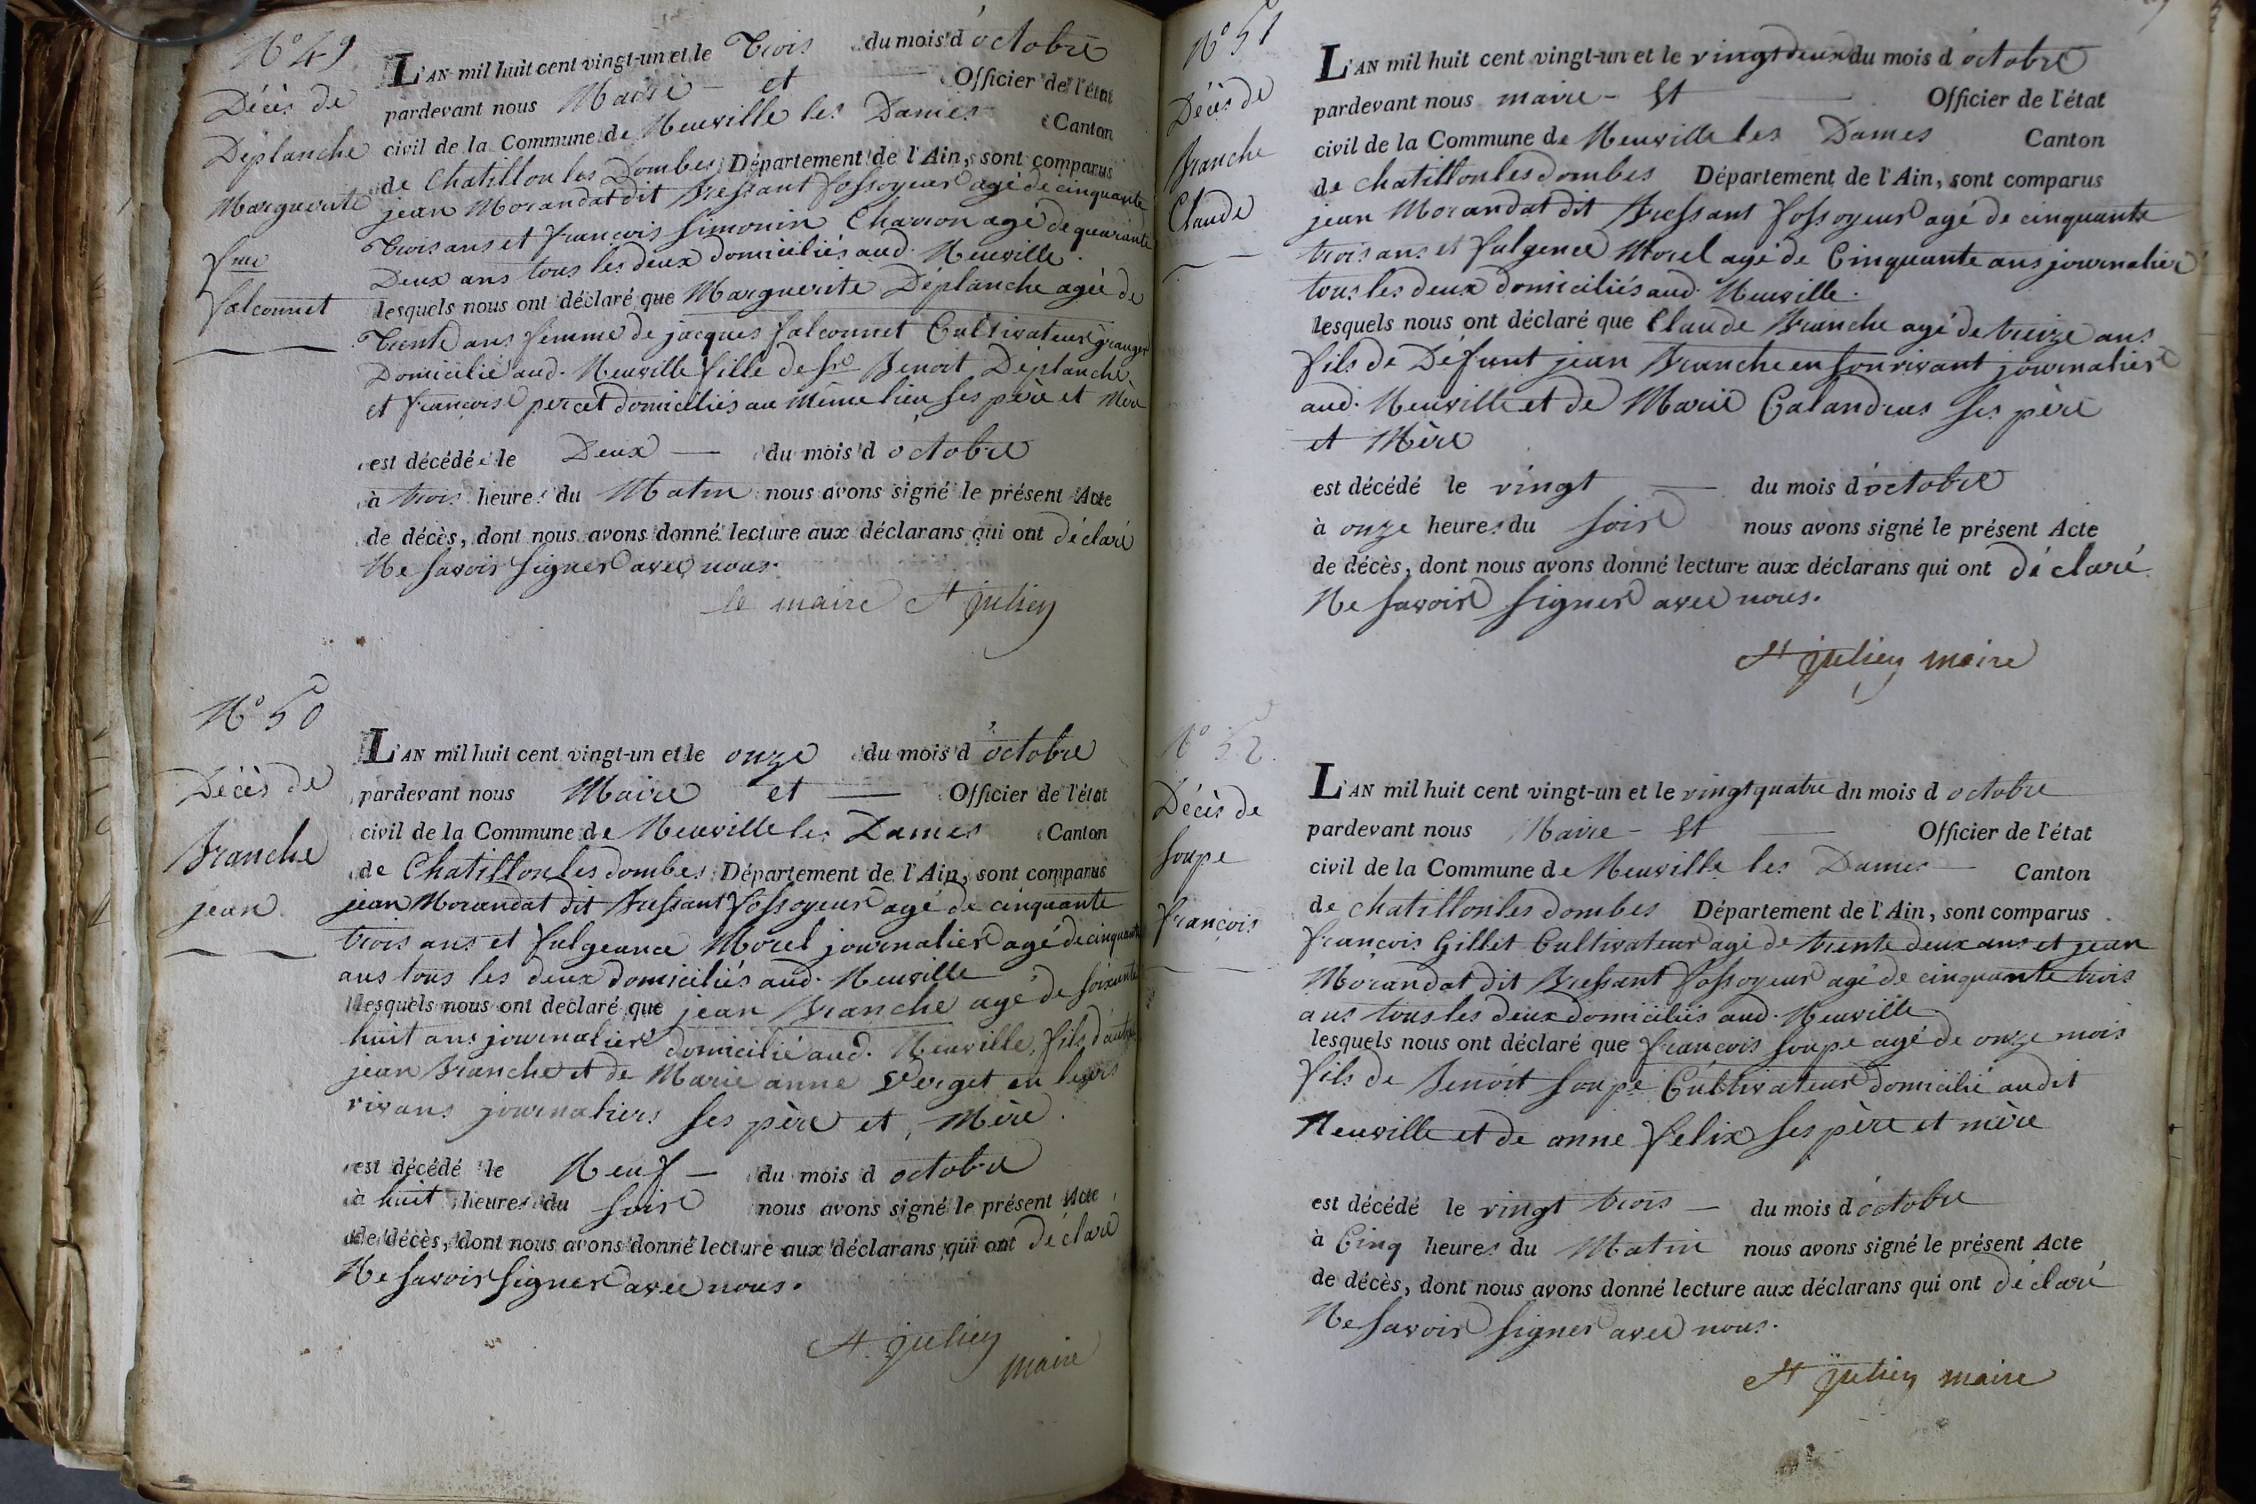 N.° 49
Décès de
Déplanche
Marguerite
fme
falconnet
L'AN mil huit cent vingt-un et le Trois du mois d'octobre
pardevant nous Maire - et — Officier de l'état
civil de la Commune de Neuville les Dames Canton
de Chatillon les Dombes Département de l'Ain, sont comparus
jean Morandat dit Bressant fossoyeur agé de cinquante
Trois ans et françois Simonin Charron agé de quarante
Deux ans tous les deux domiciliés aud. Neuville.
lesquels nous ont déclaré que Marguerite Déplanche agée de
Trente ans femme de jacques falconnet Cultivateur granger
Domicilié aud. Neuville fille de Benoit Déplanche
et françoise percet domiciliés au Même lieu ses père et Mère
est décédée le Deux — du mois d octobre
à trois heures du Matin nous avons signé le présent Acte
de décès, dont nous avons donné lecture aux déclarans qui ont déclaré
Ne savoir signer avec nous.
le maire St julien
N.° 50
Décès de
Branche
jean
L'AN mil huit cent vingt-un et le onze du mois d'octobre
pardevant nous Maire et — Officier de l'état
civil de la Commune de Neuville les Dames Canton
de Chatillon les dombes Département de l'Ain, sont comparus
jean Morandat dit Bressant fossoyeur agé de cinquante
trois ans et fulgeance Morel journalier agé de cinquante
ans tous les deux domiciliés aud. Neuville
lesquels nous ont déclaré que jean Branche agé de soixante
huit ans journalier domicilié aud. Neuville, fils d'autre
jean Branche et de Marie anne Verget en leurs
vivans journaliers ses père et Mère.
est décédé le Neuf — du mois d octobre
à huit heures du soir nous avons signé le présent Acte
de décès, dont nous avons donné lecture aux déclarans qui ont déclaré
Ne savoir signer avec nous.
St. julien
maire
N.° 51
Décès de
Branche
Claude
L'AN mil huit cent vingt-un et le vingt deux du mois d'octobre
pardevant nous maire - Et — Officier de l'état
civil de la Commune de Neuville les Dames Canton
de chatillon les dombes Département de l'Ain, sont comparus
jean Morandat dit Bressant fossoyeur agé de cinquante
trois ans et fulgence Morel agé de Cinquante ans journalier
tous les deux domiciliés aud. Neuville.
lesquels nous ont déclaré que Claude Branche agé de treize ans
fils de Défunt jean Branche en son vivant journalier
aud. Neuville et de Marie Calandras ses père
et Mère
est décédé le vingt — du mois d'octobre
à onze heures du soir nous avons signé le présent Acte
de décès, dont nous avons donné lecture aux déclarans qui ont déclaré
Ne savoir signer avec nous.
St julien maire
N.° 52.
Décès de
soupe
françois
L'AN mil huit cent vingt-un et le vingt quatre dn mois d octobre
pardevant nous Maire - Et — Officier de l'état
civil de la Commune de Neuville les Dames — Canton
de chatillon les dombes Département de l'Ain, sont comparus
françois Gillet Cultivateur agé de trente deux ans et jean
Morandat dit Bressant fossoyeur agé de cinquante trois
ans tous les deux domiciliés aud. Neuville
lesquels nous ont déclaré que françois soupe agé de onze mois
fils de Benoit soupe Cultivateur domicilié audit
Neuville et de anne felix ses père et mère
est décédé le vingt trois — du mois d'octobre
à Cinq heures du Matin nous avons signé le présent Acte
de décès, dont nous avons donné lecture aux déclarans qui ont déclaré
Ne savoir signer avec nous.
St julien maire